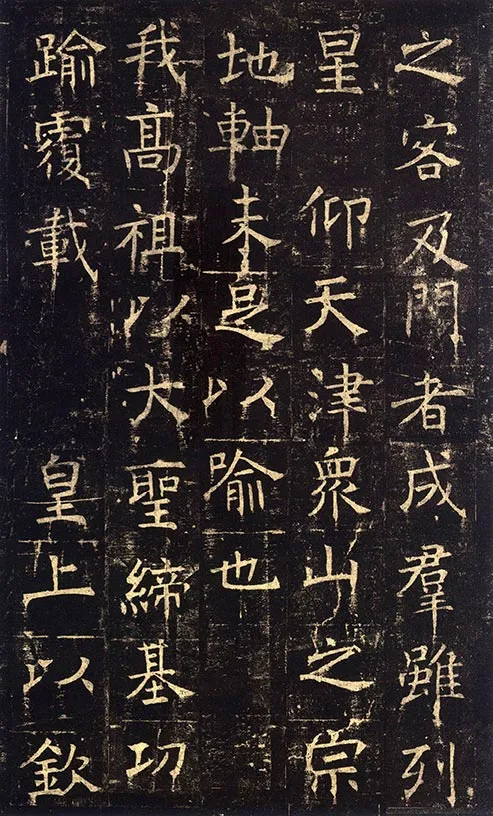 之客及門者成羣雖列
星 仰天津衆山之宗
地軸未足以喻也
我髙祖以大聖締基功
踰覆載 皇上以欽